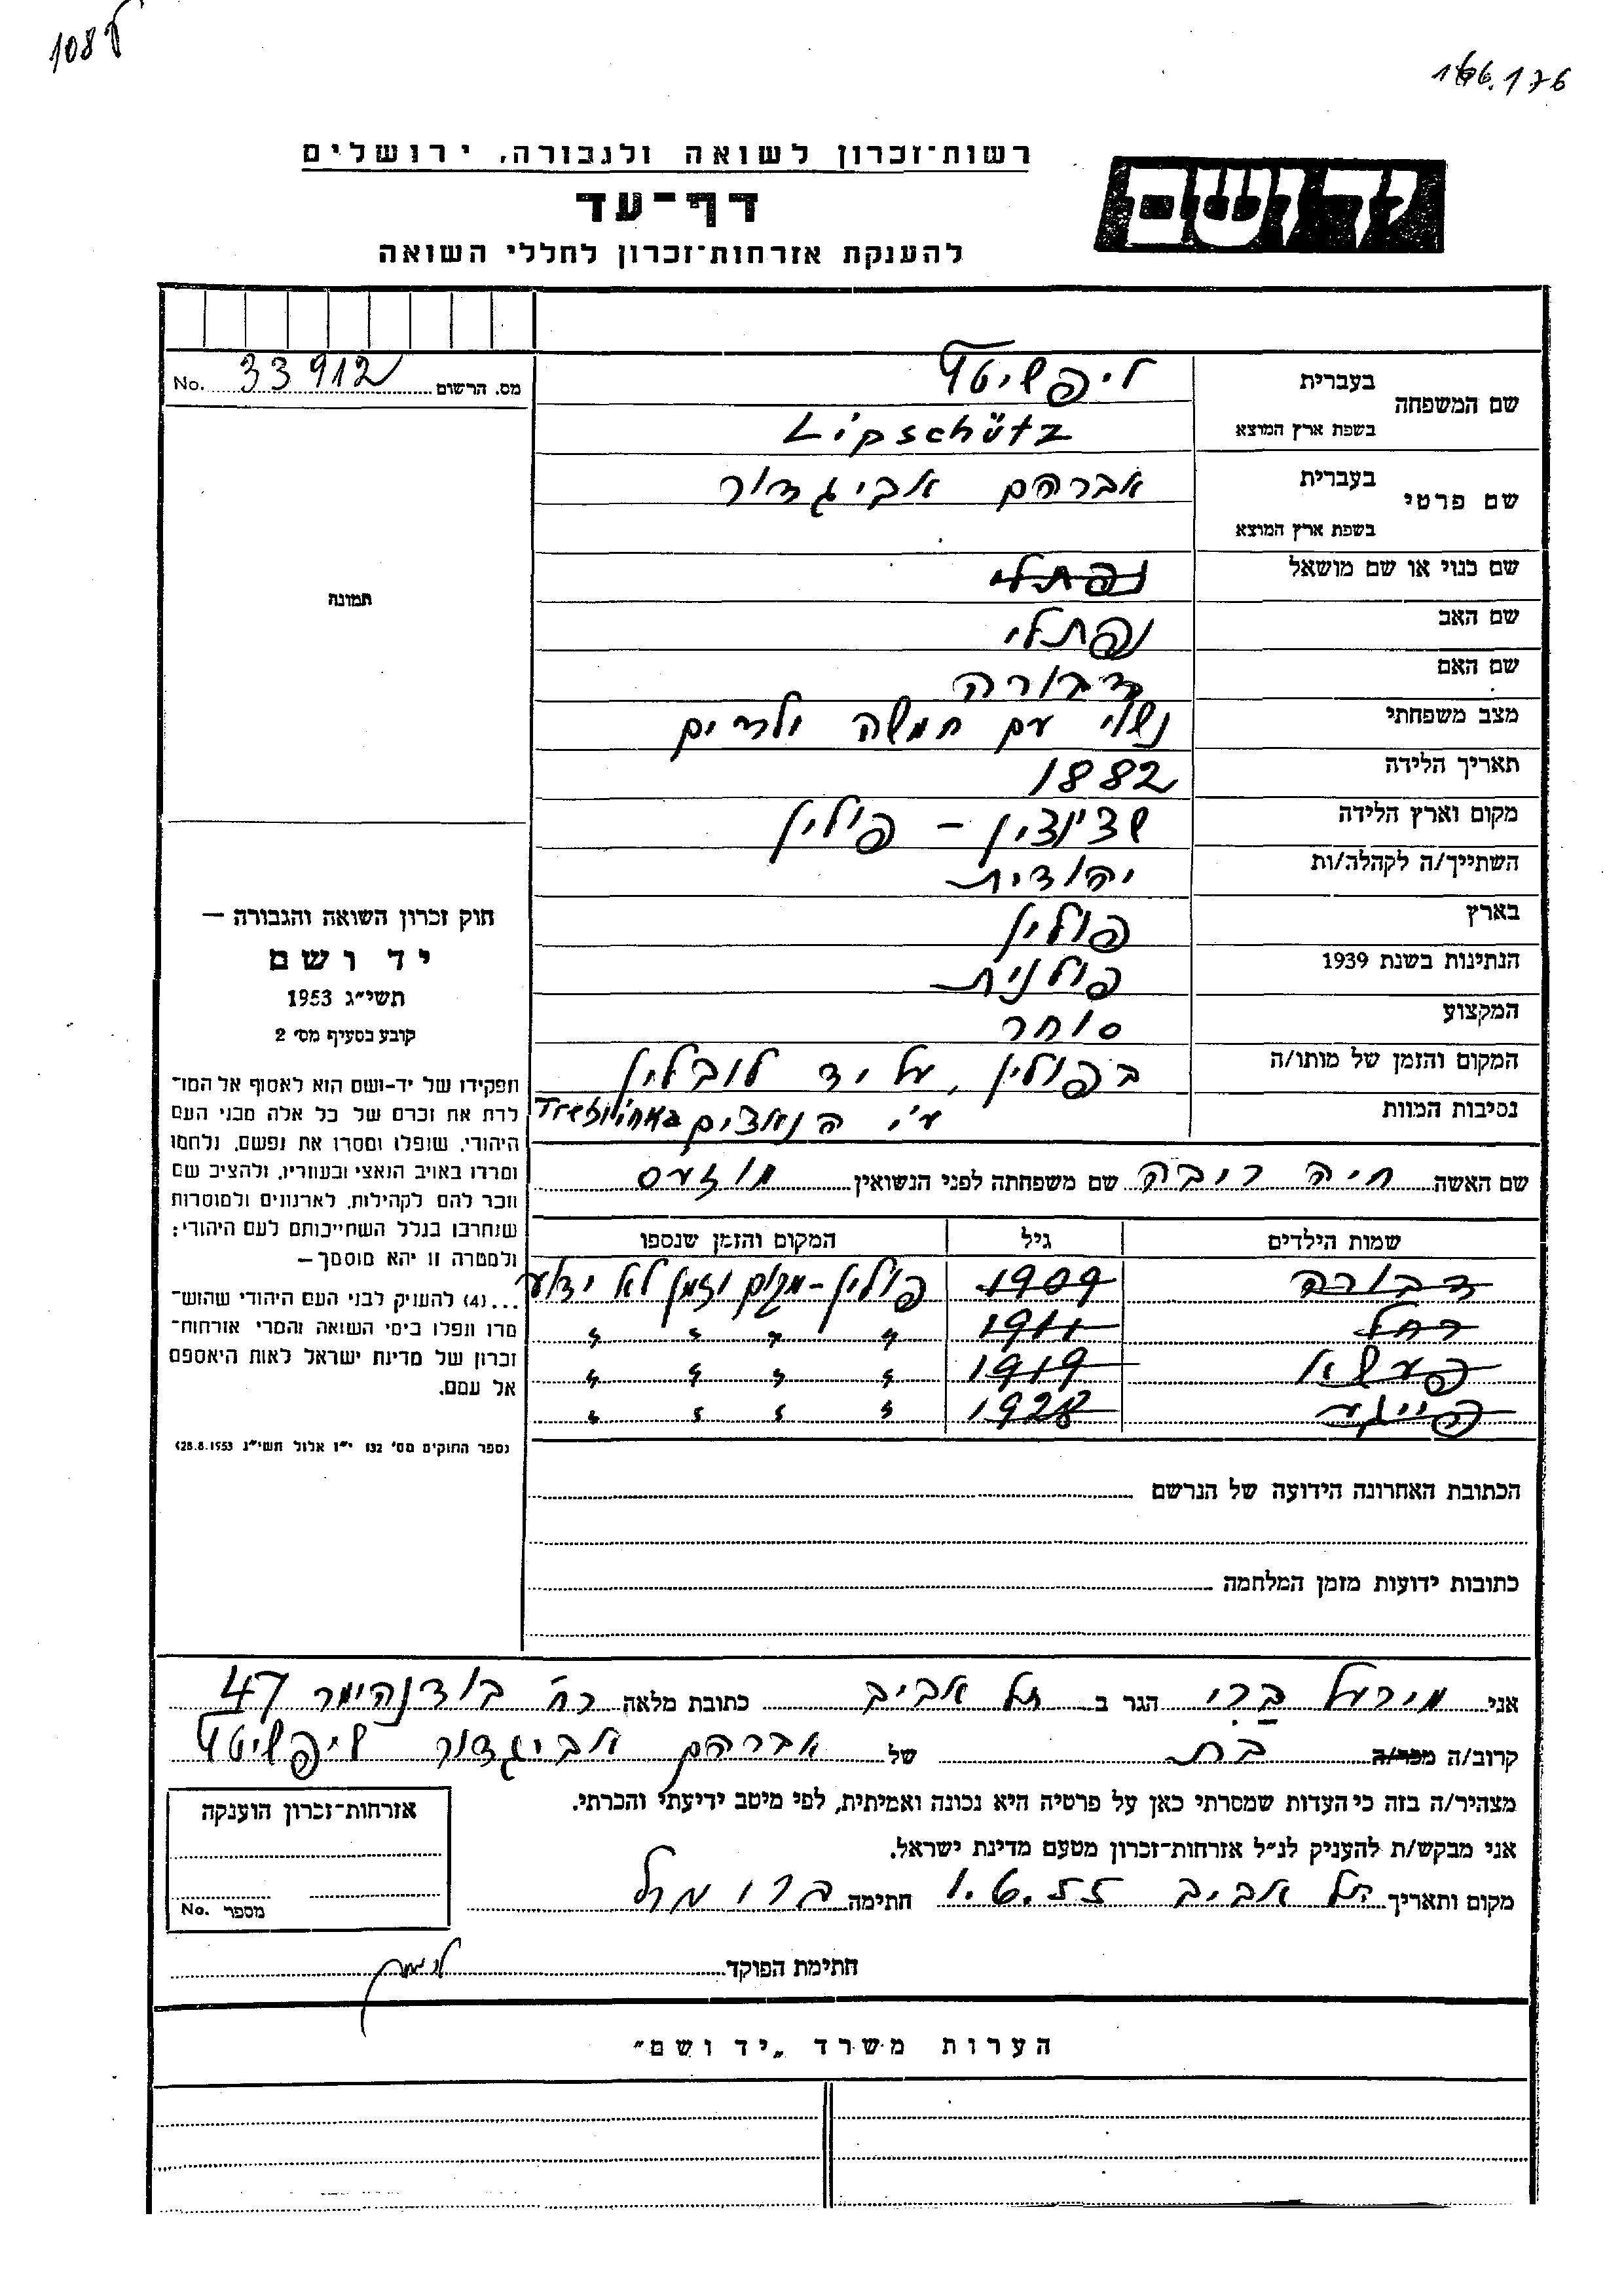 108
166.176
רשות־זכרון לשואה ולגבורה, ירושלים
יד ושם
דף־עד
להענקת אזרחות־זכרון לחללי השואה
מס. הרשום 33912 No.
שם המשפחה
בעברית ליפשיטץ
בשפת ארץ המוצא Lipschütz
שם פרטי
בעברית אברהם אביגדור
בשפת ארץ המוצא
שם כנוי או שם מושאל נפתלי
שם האב נפתלי
שם האם דבורה
מצב משפחתי נשוי עם חמשה ילדים
תאריך הלידה 1882
מקום וארץ הלידה - פולין
השתייך/ה לקהלה/ות יהודית
בארץ פולין
הנתינות בשנת 1939 פולנית
המקצוע סוחר
המקום והזמן של מותו/ה בפולין, על יד לובלין
נסיבות המוות ע"י הנאצים במחנה
שם האשה חיה ריבה שם משפחתה לפני הנשואין
שמות הילדים גיל המקום והזמן שנספו
דבורה 1909 פולין - מקום וזמן לא ידוע
רחל 1911 " " " "
פעשא 1919 " " " "
פייגע 1928 " " " "
הכתובת האחרונה הידועה של הנרשם
כתובות ידועות מזמן המלחמה
תמונה
חוק זכרון השואה והגבורה —
יד ושם
תשי"ג 1953
קובע בסעיף מס' 2
תפקידו של יד-ושם הוא לאסוף אל המו־
לדת את זכרם של כל אלה מבני העם
היהודי, שנפלו ומסרו את נפשם, נלחמו
ומרדו באויב הנאצי ובעוזריו, ולהציב שם
וזכר להם לקהילות, לארגונים ולמוסדות
שנחרבו בגלל השתייכותם לעם היהודי;
ולמטרה זו יהא מוסמך —
...(4) להעניק לבני העם היהודי שהוש־
מדו ונפלו בימי השואה והמרי אזרחות־
זכרון של מדינת ישראל לאות היאספם
אל עמם.
(ספר החוקים מס' 132 י"ז אלול תשי"ג 28.8.1953)
אני מירעל ברי הגר ב תל אביב כתובת מלאה רח' בודנהימר 47
קרוב/ה מכר/ה בת של אברהם אביגדור ליפשיטץ
מצהיר/ה בזה כי העדות שמסרתי כאן על פרטיה היא נכונה ואמיתית, לפי מיטב ידיעתי והכרתי.
אני מבקש/ת להעניק לנ"ל אזרחות־זכרון מטעם מדינת ישראל.
מקום ותאריך תל אביב 1.6.55 חתימה
אזרחות־זכרון הוענקה
מספר No.
חתימת הפוקד
הערות משרד „יד ושם"